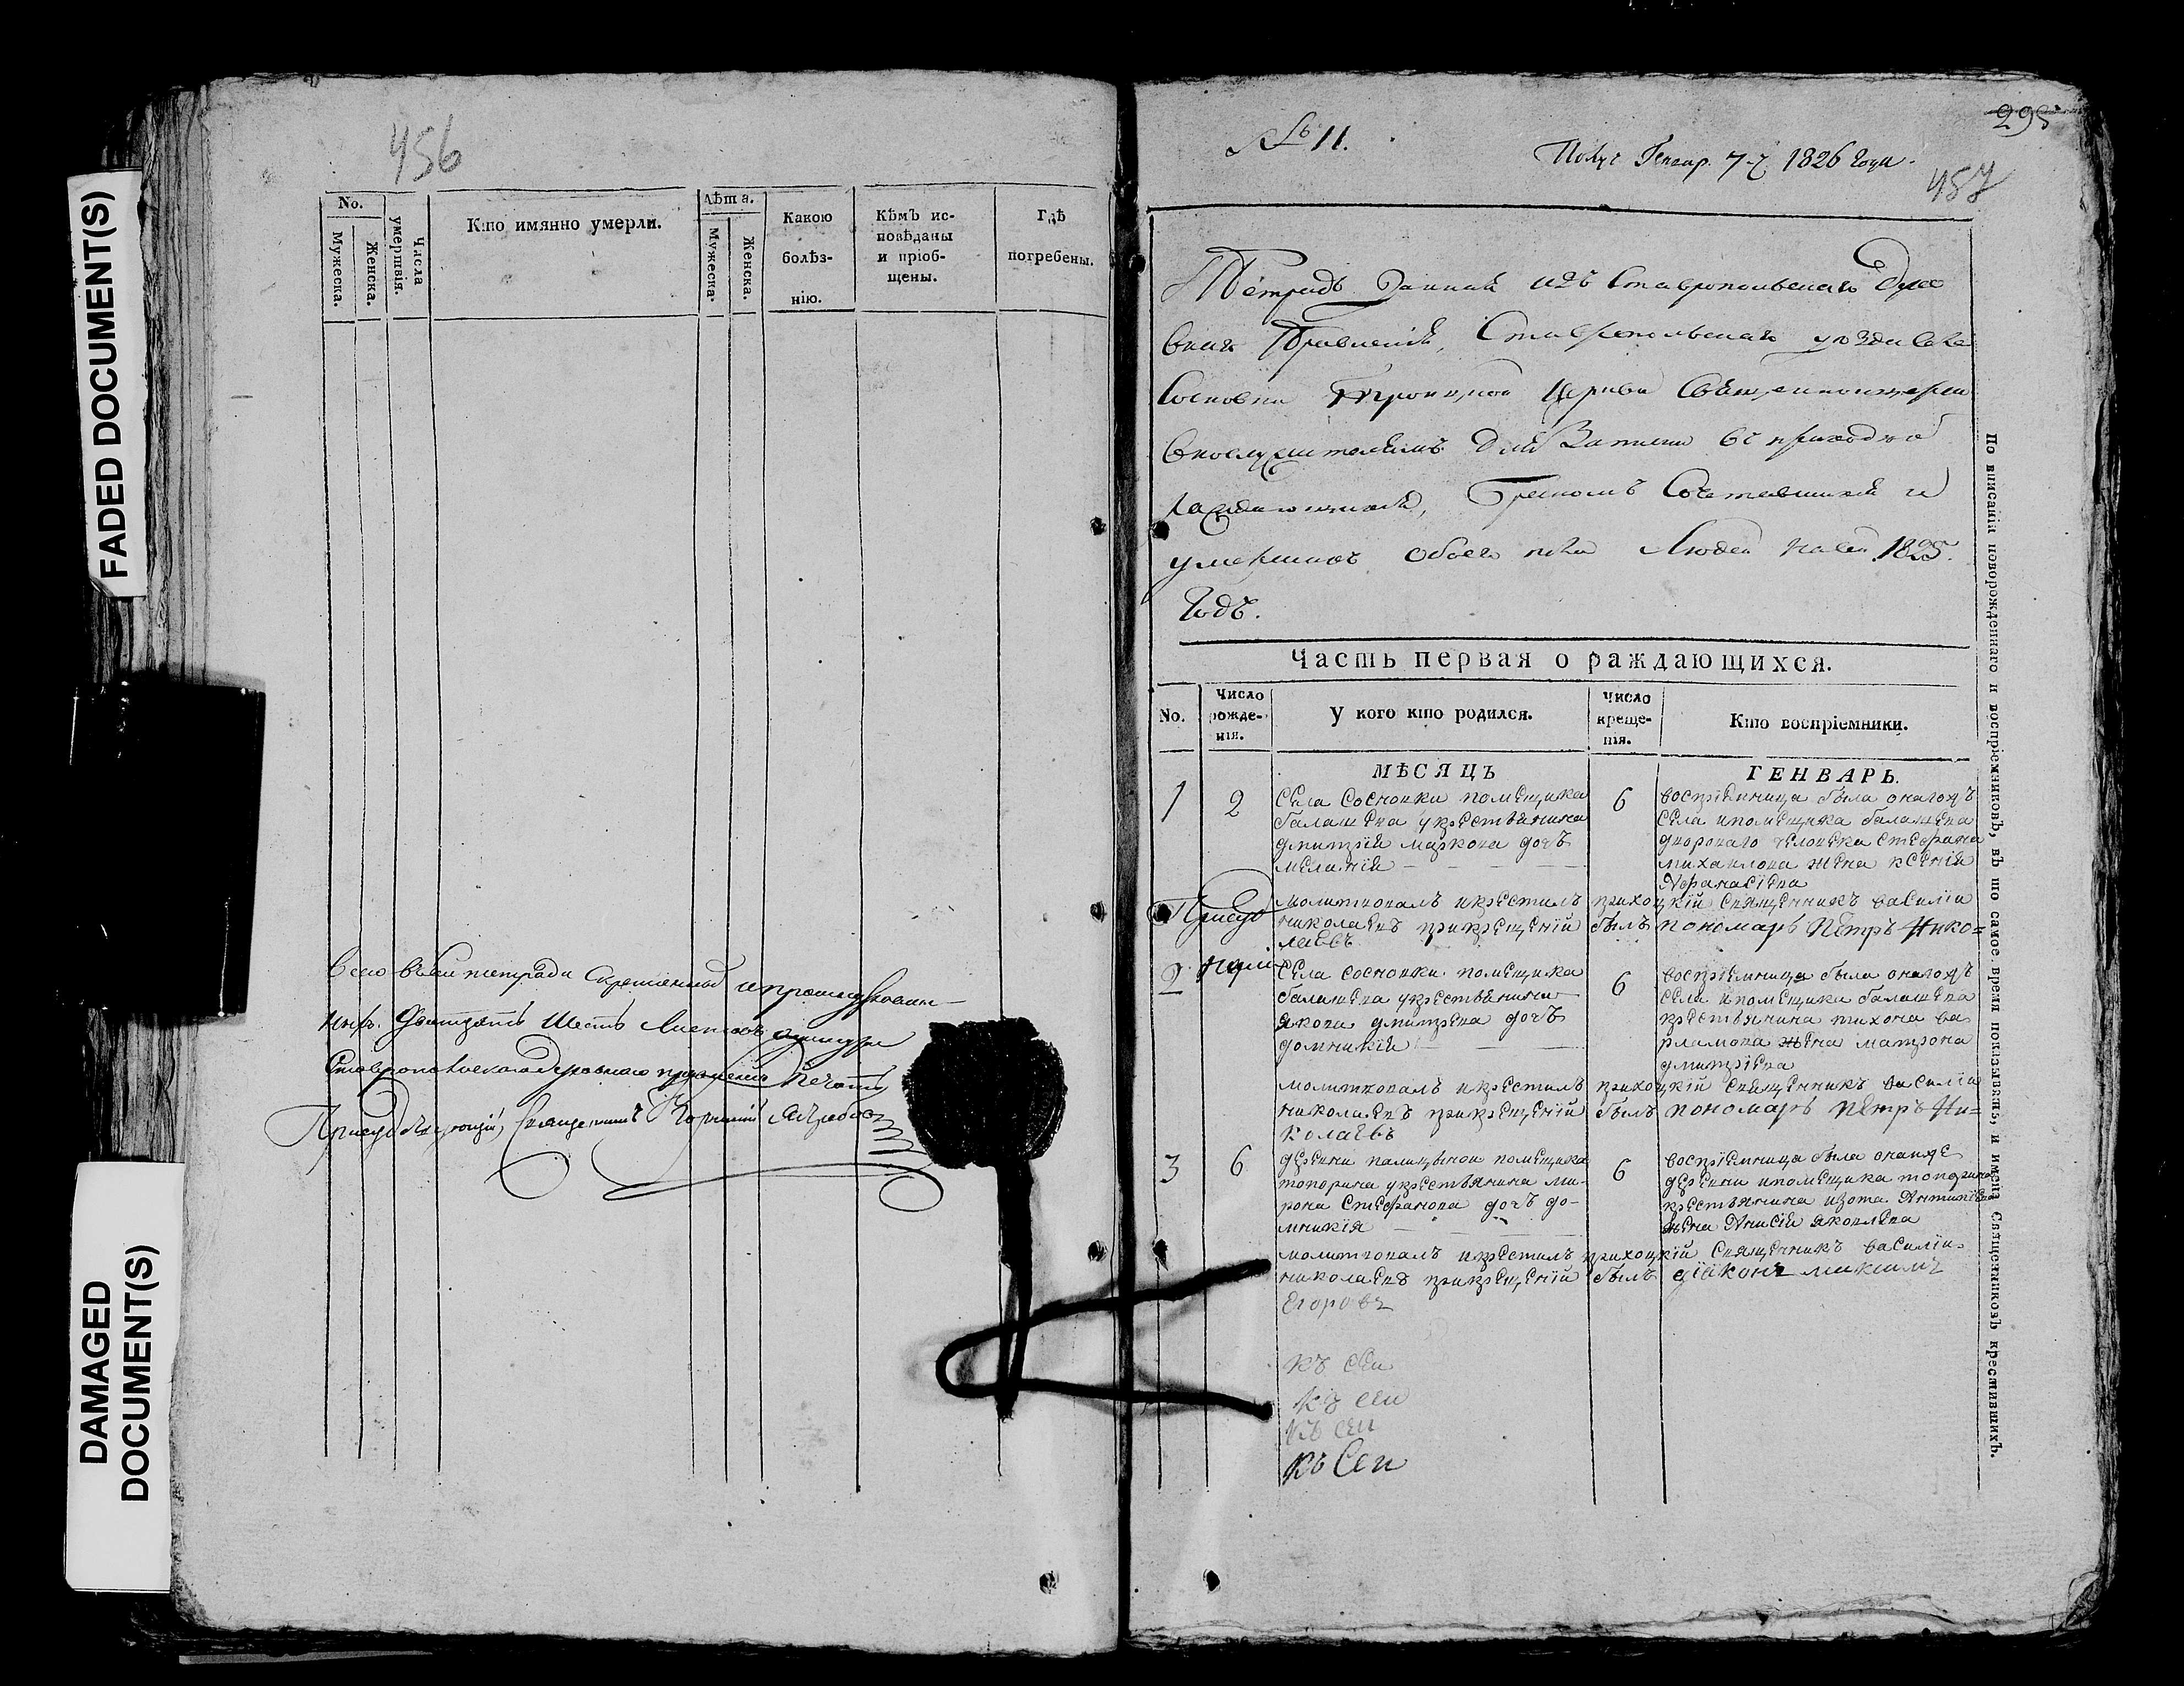 FADED DOCUMENT(S)
DAMAGED
DOCUMENT(S)
456
No.
Мужеска.
Женска.
Числа
умертвія.
Кто имянно умерли.
Лѣта.
Мужеска.
Женска.
Какою
болѣз-
нію.
Кѣмъ ис-
повѣданы
и пріоб-
щены.
Гдѣ
погребены.
Всего въ сей тетради скрепленной и прошнурован-
ныхъ двадцать шесть листовъ
Ставропольского Духовнаго правленія печать
Присудствующій, Священникъ
№ 11.
Полу: Генвар. 7-г 1826 года.
295
457
Тетрадь данная изъ Ставропольскаго Духо
внаго Правленія, Ставропольскаго уѣзда села
Сосновки Троицкой Церкви Священноцерко
внослужителямъ для записи въ приходѣ
раждающихся, бракомъ Сочетавшихся и
умершихъ обоего пола Людей на сей 1825.
Годъ.
Часть первая о раждающихся.
No.
Число
рожде-
нія.
У кого кто родился.
Число
креще-
нія.
Кто воспріемники.
МѢСЯЦЪ
ГЕНВАРЬ.
1
2
села сосновки помещика
балашева укрестьянина
дмитрія маркова дочь
меланія
6
воспріемница была онагожъ
села ипомещика балашева
двороваго человека стефана
михаилова жена ксенія
Афанасіева
Присуд
молитвовалъ икрестилъ приходкій священникъ василіи
николаевъ прикрещеніи былъ пономарь Пѣтръ Нико=
лаевъ
2
села сосновки помещика
балашева укрестьянина
якова дмитрева дочь
домникія
6
воспріемница была онагожъ
села ипомещика балашева
крестьянина тихона ва
рламова жена матрона
дмитріева
молитвовалъ икрестилъ приходкій священникъ василіи
николаевъ прикрещеніи былъ пономарь Пѣтръ Ни=
колаевъ
3
6
деревни палицыной помещика
топорина укрестьянина ми-
рона стефанова дочь до-
мникія
6
воспріемница была онаяже
деревни ипомещика топорина
крестьянина изота Антипіева
жена Анисія яковлева
молитвовалъ икрестилъ приходкій священникъ василіи
николаевъ прикрещеніи былъ діаконъ максимъ
Егоровъ
къ сеи
къ сеи
къ сеи
къ Сеи
По вписаніи новорожденнаго и воспріемниковъ, въ то самое время показывать, и имена Священниковъ крестившихъ.